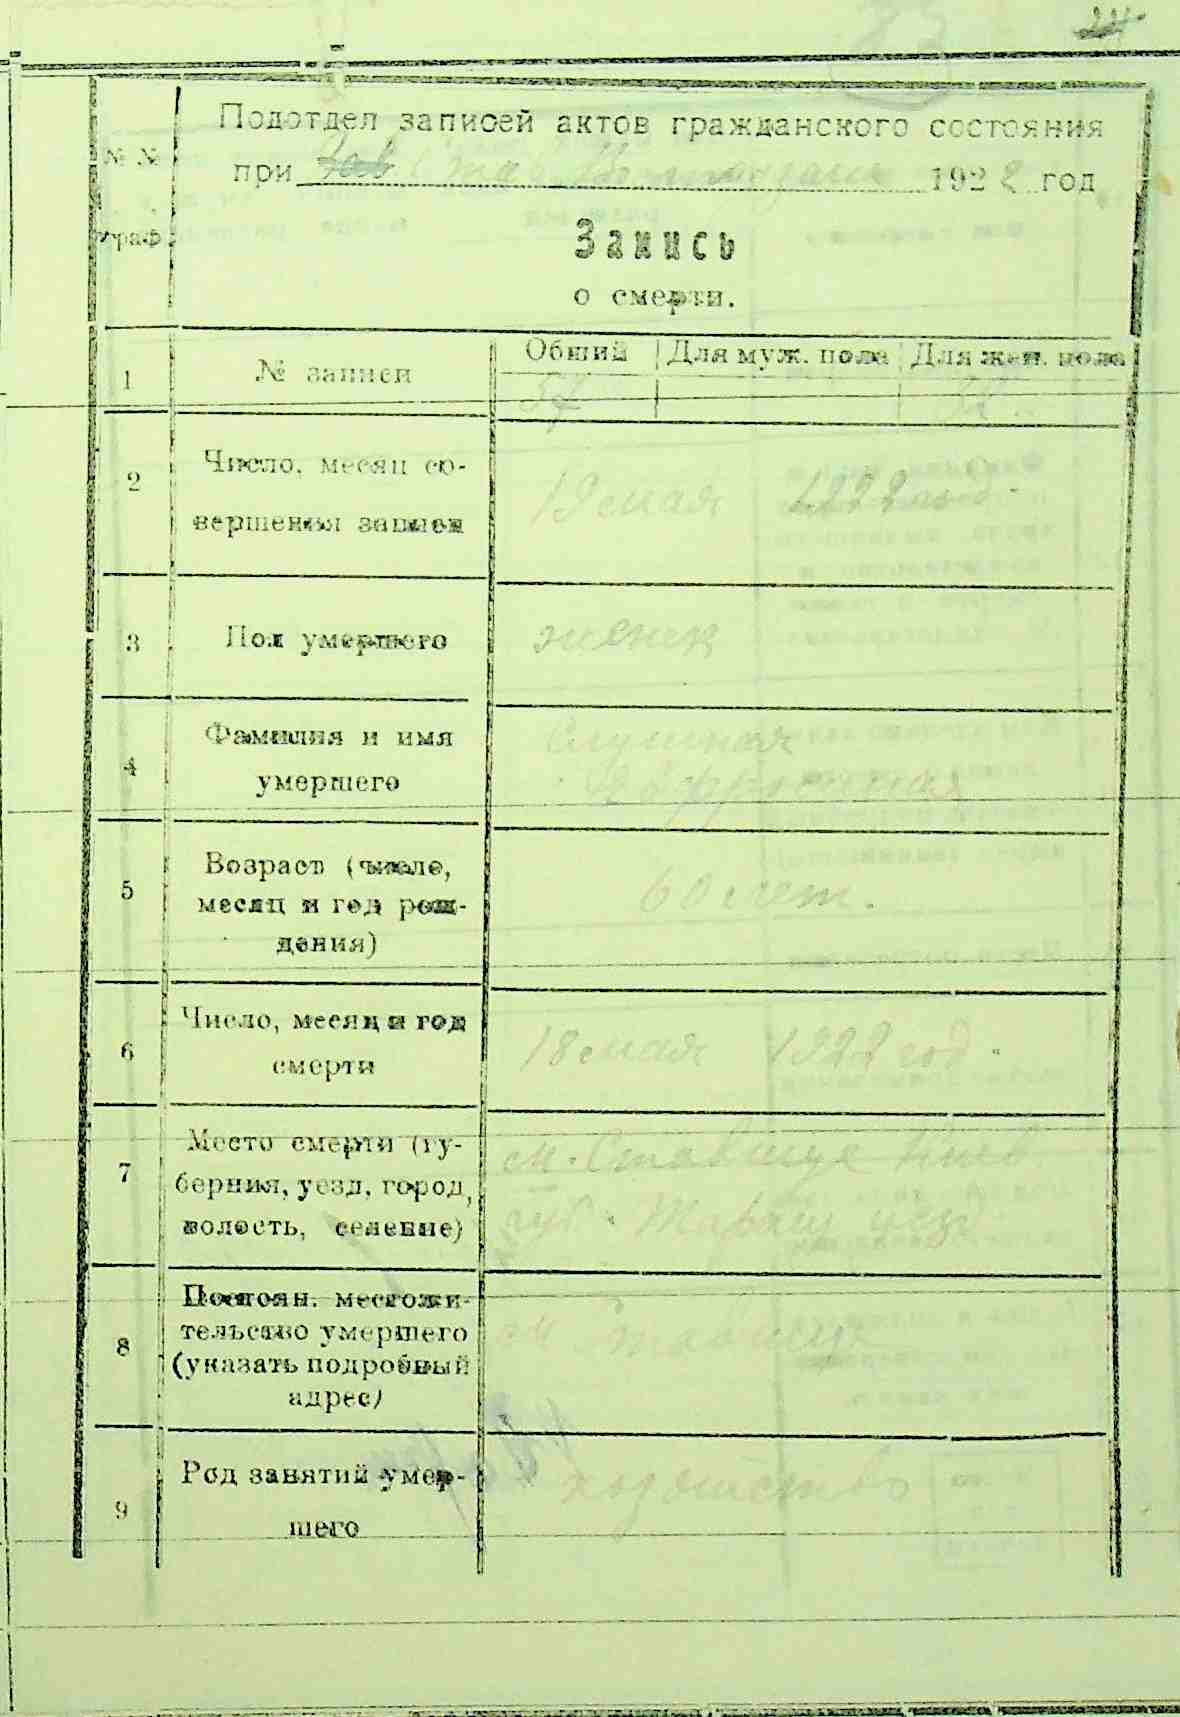 Подотдел записей актов гражданского состояния
при Став. 1922 год
№ №
граф
Запись
о смерти.
1 № записи Общий Для муж. пола Для жен. пола
57
2 Число, месяц со-
вершения записи
19 мая 1922 год.
3 Пол умершего женск
4 Фамилия и имя
умершего
5 Возраст (число,
месяц и год рож-
дения)
60 лет.
6 Число, месяц и год
смерти
18 мая 1922 год.
7 Место смерти (гу-
берния, уезд, город,
волость, селение)
м. Ставище Киев
губ. Таращ уезд
8 Постоян. местожи-
тельство умершего
(указать подробный
адрес)
м Ставище
9 Род занятий умер-
шего
хозяйство